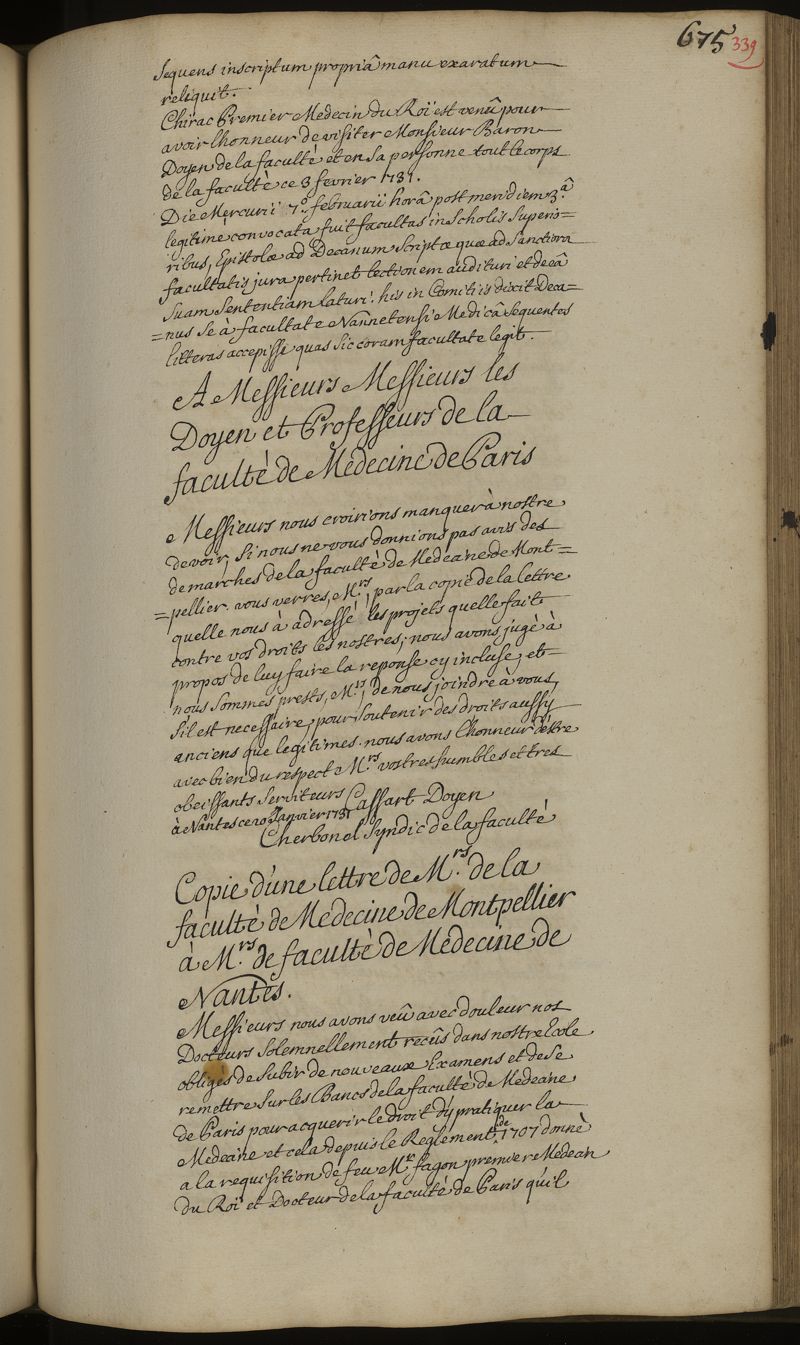 675 339
Sequens inscriptum propriâ manu exaratum
reliquit.
Chirac Premier Medecin du Roi est venû pour
avoir lhonneur de visiter Monsieur Baron
Doyen de la faculté et en sa personne tout le corps
de la faculté ce 3 fevrier 1731.
Die Mercurii 7.ª februarii horâ post meridiem 3.ª
legitimè convocata fuit facultas in Scholis Superio=
ribus, Epistolæ ad Decanum Scriptæ quæ ad Sanctiora
facultatis jura pertinet lectionem auditura et de eâ
Suam Sententiam latura. his in Comitiis dixit Deca=
=nus Se à facultate Nannetensi Medicâ Sequentes
litteras accepisse quas sic coram facultate legit.
A Messieurs Messieurs les
Doyen et Professeurs de la
faculté de Médecine de Paris
Messieurs nous croirions manquer à nostre
devoir, Si nous ne vous donnions pas avis des
demarches de la faculté de Medecine de Mont=
=pellier. vous verres, M.rs, par la copie de la lettre
quelle nous à adressé, les projets quelle fait
contre vos droits les nostres; nous avons jugè à
propos de luy faire la reponse cy incluse, et
nous Sommes prests, M.rs, de nous joindre à vous,
s'il est necessaire, pour Soutenir des droits aussy
anciens que legitimes. nous avons lhonneur d'être
avec bien du respect M.rs vos tres humbles et tres
obeissants Serviteurs Cassart Doyen
à Nantes ce 20 Janvier 1731
Cherbonel Syndic de la faculté
Copie d'une lettre de M.rs de la
faculté de Medecine de Montpellier
à M.rs de faculté de Médecine de
Nantes.
Messieurs nous avons veû avec douleur nos
Docteurs Solemnellement recûs dans nostre Ecole
obligés de Subir de nouveaux Examens et de Se
remettre Sur les Bancs de la faculté de Medecine
de Paris pour acquerir le droit dy pratiquer la
Medecine et cela depuis le Reglement de 1707 donnè
a la requisition de feu M.r fagon premier Medecin
du Roi et Docteur de la faculté de Paris qu'il